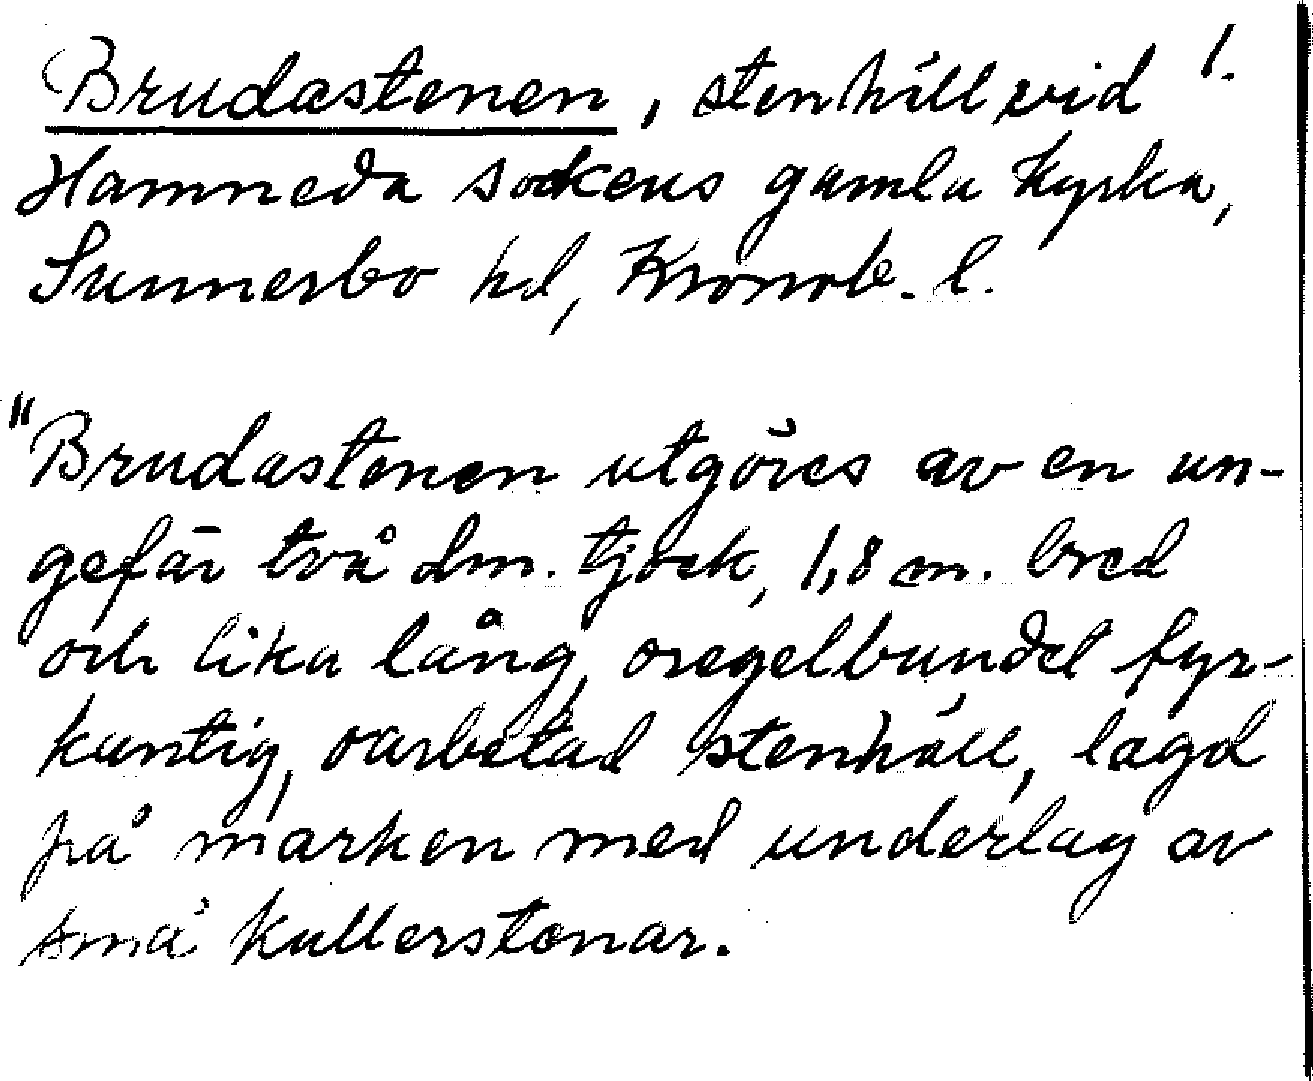 Brudastenen, stenhäll vid 1.
Hamneda sockens gamla kyrka,
Sunnerbo hd, Kronob. l.
"Brudastenen utgöres av en un-
gefär två dm. tjock, 1,8 m. bred
och lika lång, oregelbundet fyr-
kantig, oarbetad stenhäll, lagd
på marken med underlag av
små kullerstenar.